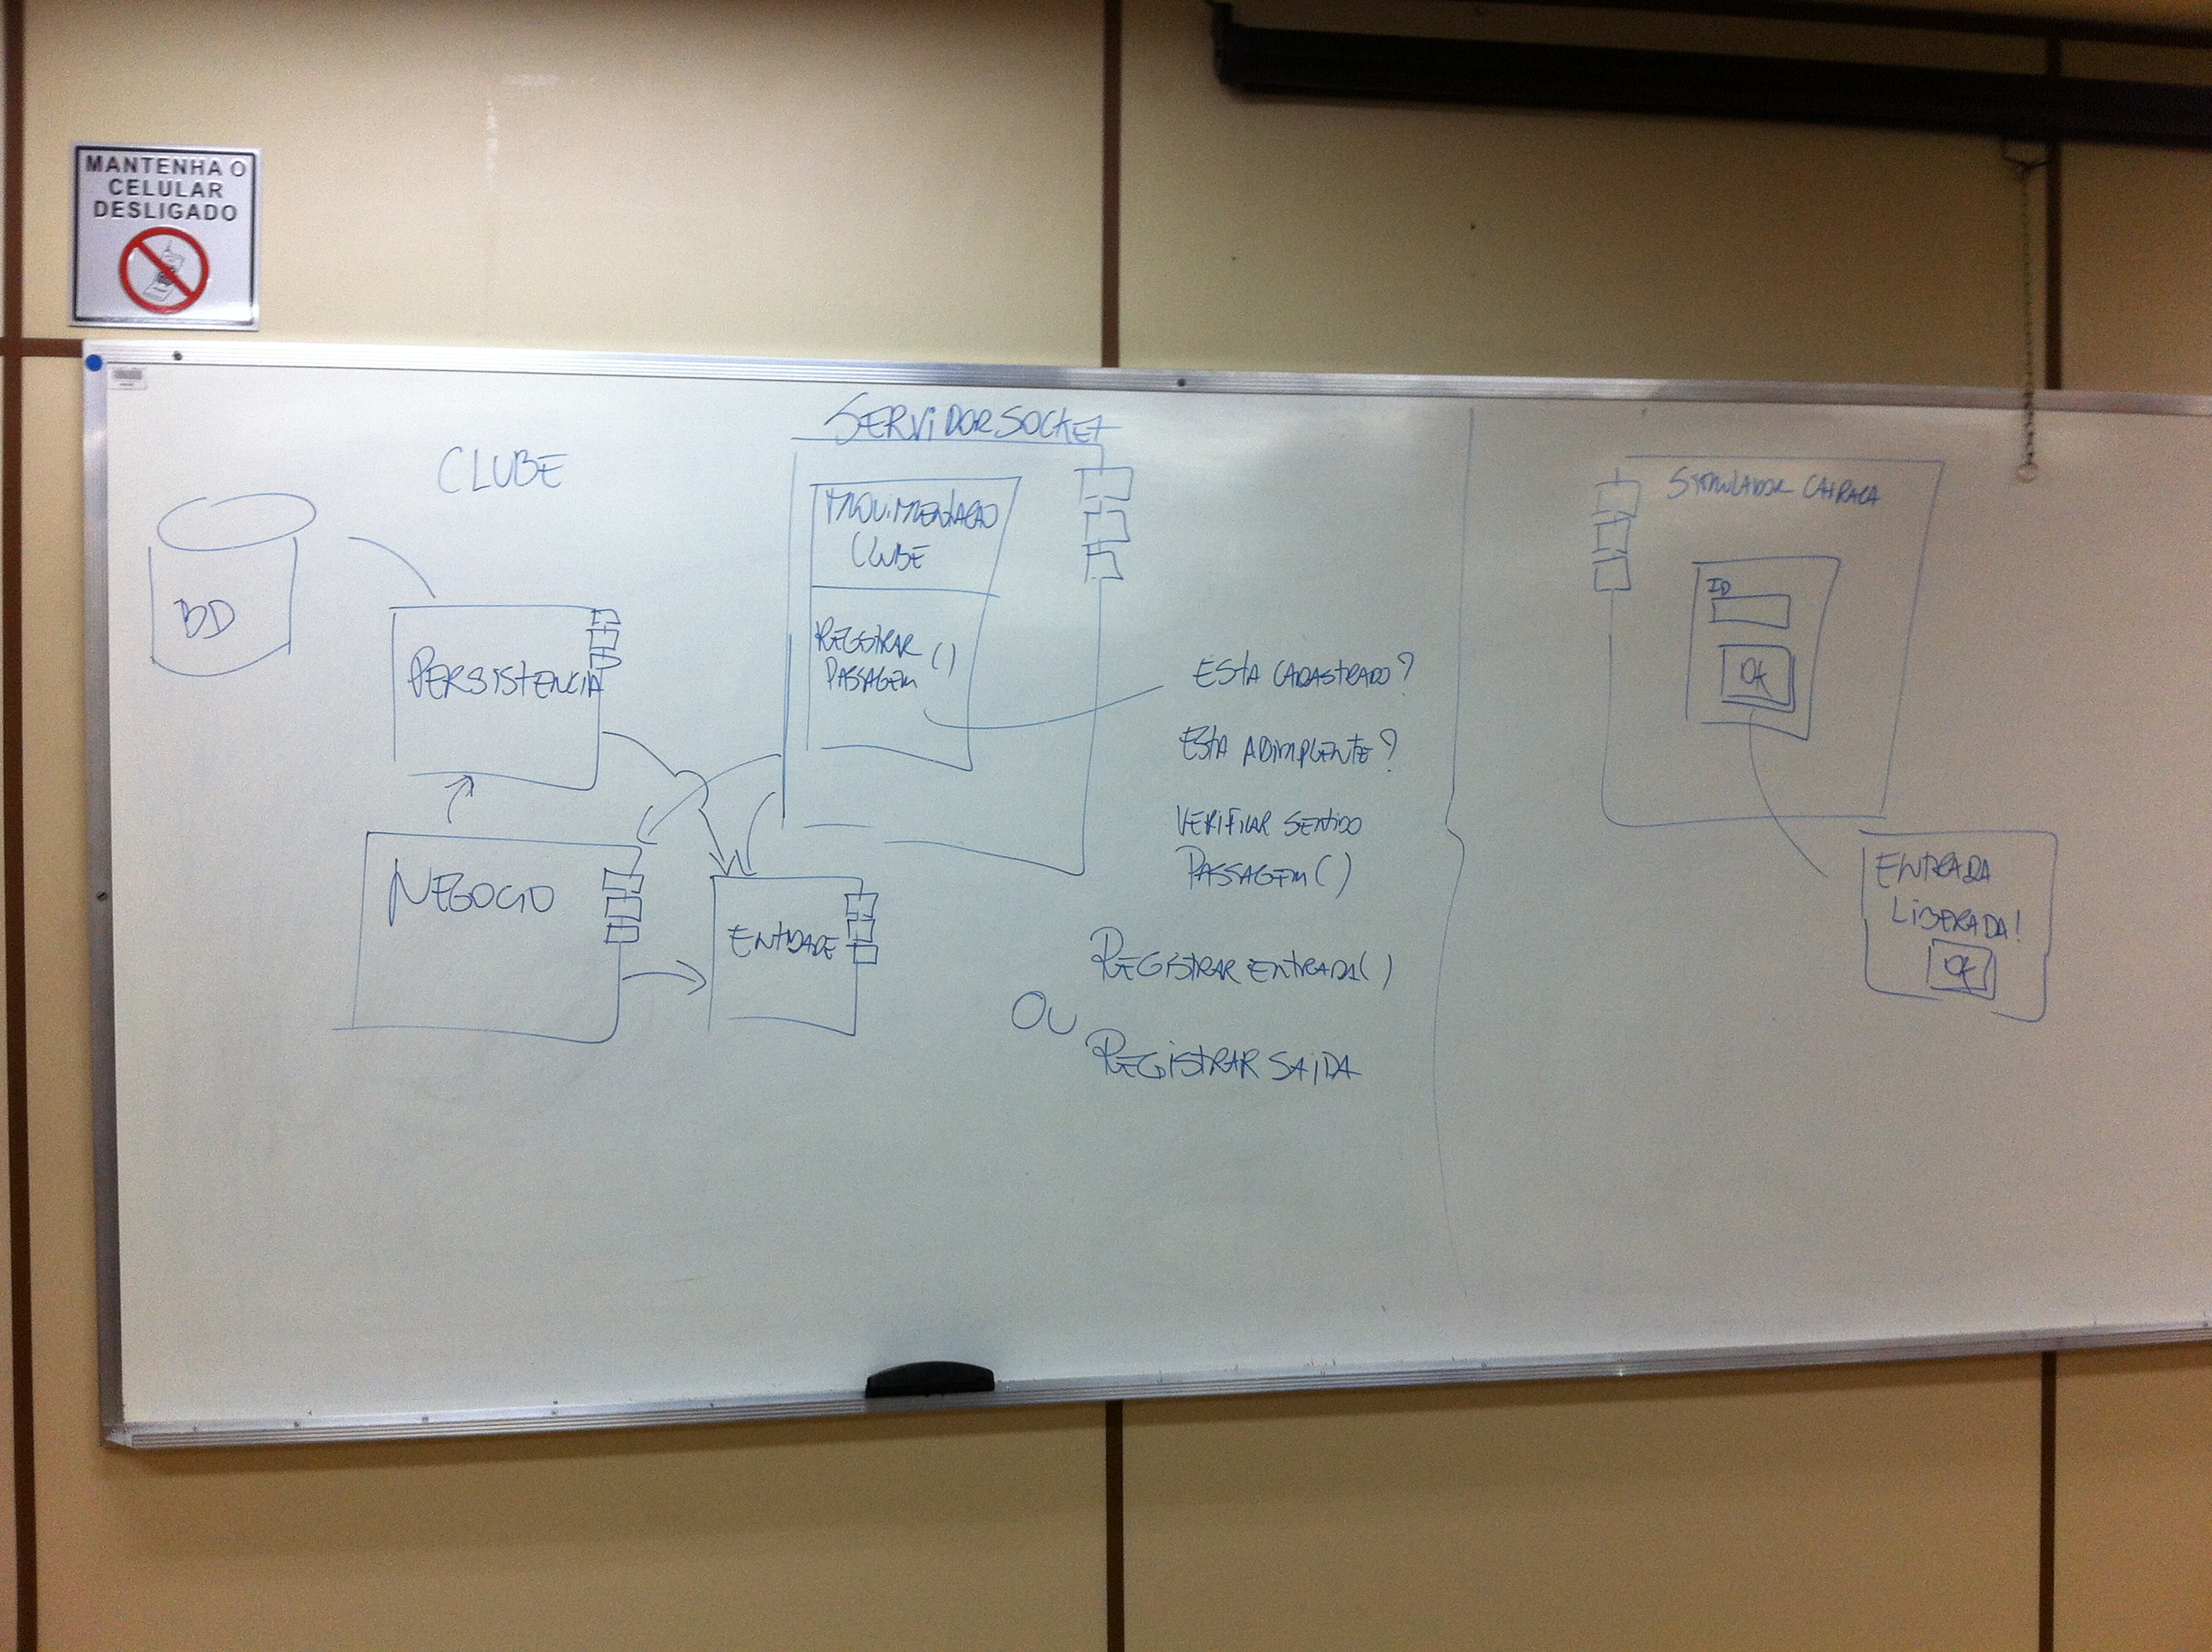 MANTENHA O
CELULAR
DESLIGADO
CLUBE
BD
PERSISTENCIA
NEGOCIO
ENTIDADE
SERVIDOR SOCKET
MOVIMENTACAO
CLUBE
REGISTRAR ()
PASSAGEM
ESTA CADASTRADO?
ESTA ADIMPLENTE?
VERIFICAR SENTIDO
PASSAGEM()
REGISTRAR ENTRADA()
OU
REGISTRAR SAIDA
SIMULADOR CATRACA
ID
OK
ENTRADA
LIBERADA!
OK